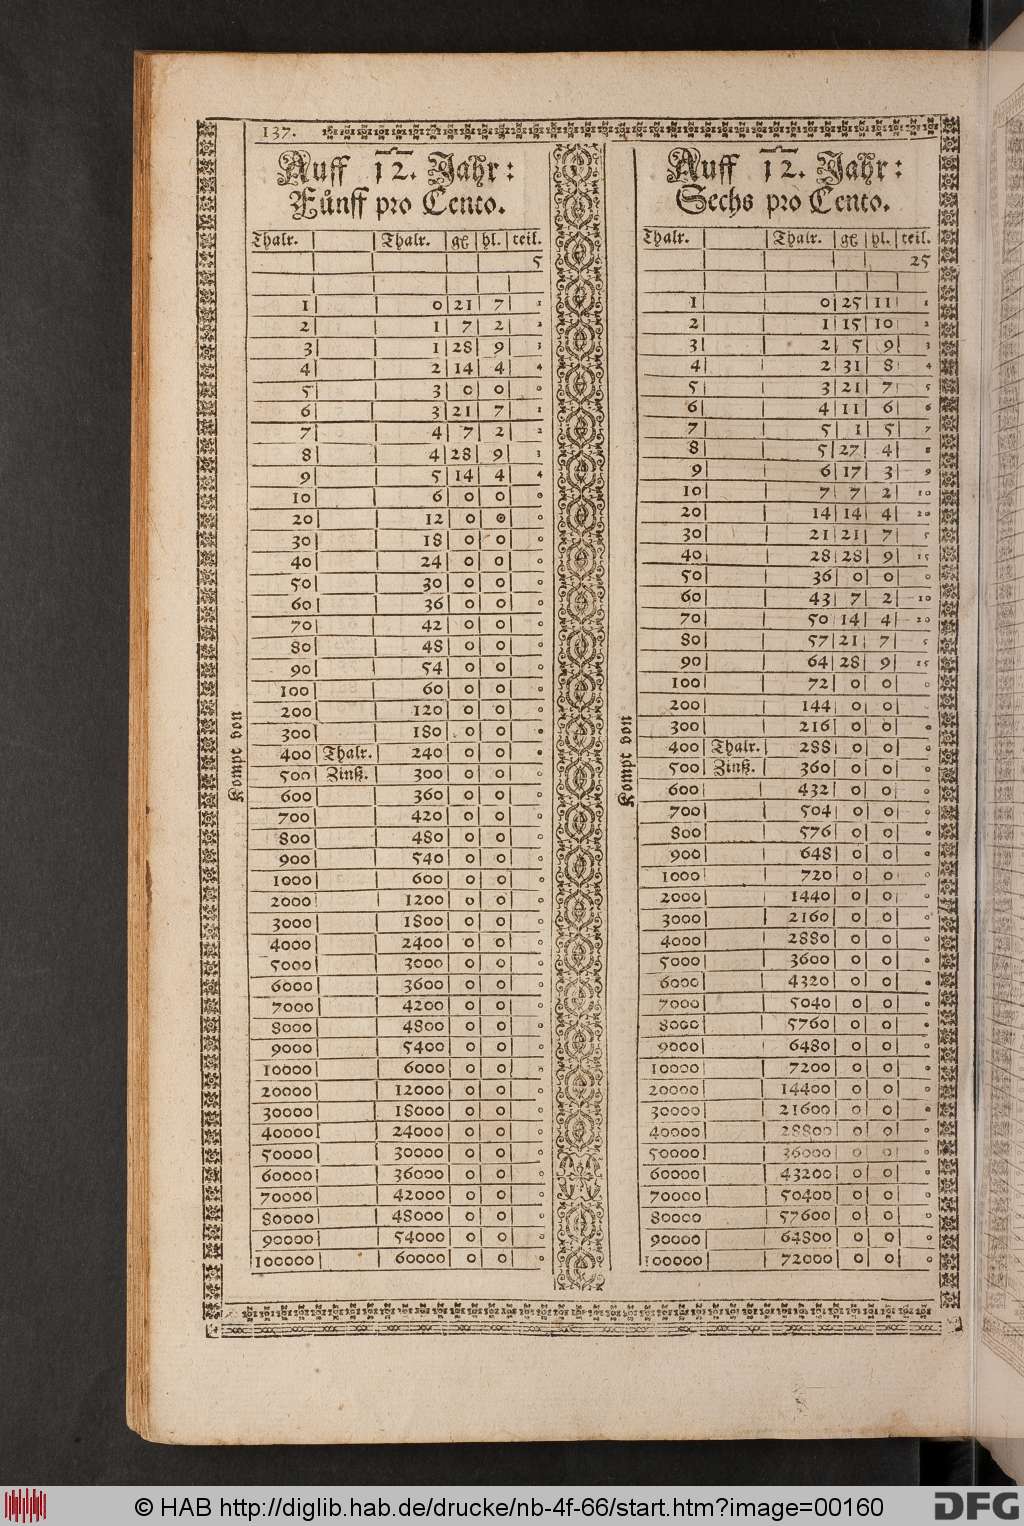 137.
Auff 12. Jahr:
Fünff pro Cento.
Thalr. Thalr. gℓ hl. teil.
5
1 0 21 7 1
2 1 7 2 2
3 1 28 9 3
4 2 14 4 4
5 3 0 0 0
6 3 21 7 1
7 4 7 2 2
8 4 28 9 3
9 5 14 4 4
10 6 0 0 0
20 12 0 0 0
30 18 0 0 0
40 24 0 0 0
50 30 0 0 0
60 36 0 0 0
70 42 0 0 0
80 48 0 0 0
90 54 0 0 0
100 60 0 0 0
200 120 0 0 0
300 180 0 0 0
400 Thalr. 240 0 0 0
500 Zinß. 300 0 0 0
600 360 0 0 0
700 420 0 0 0
800 480 0 0 0
900 540 0 0 0
1000 600 0 0 0
2000 1200 0 0 0
3000 1800 0 0 0
4000 2400 0 0 0
5000 3000 0 0 0
6000 3600 0 0 0
7000 4200 0 0 0
8000 4800 0 0 0
9000 5400 0 0 0
10000 6000 0 0 0
20000 12000 0 0 0
30000 18000 0 0 0
40000 24000 0 0 0
50000 30000 0 0 0
60000 36000 0 0 0
70000 42000 0 0 0
80000 48000 0 0 0
90000 54000 0 0 0
100000 60000 0 0 0
Kompt von
Auff 12. Jahr:
Sechs pro Cento.
Thalr. Thalr. gℓ hl. teil.
25
1 0 25 11 1
2 1 15 10 2
3 2 5 9 3
4 2 31 8 4
5 3 21 7 5
6 4 11 6 6
7 5 1 5 7
8 5 27 4 8
9 6 17 3 9
10 7 7 2 10
20 14 14 4 20
30 21 21 7 5
40 28 28 9 15
50 36 0 0 0
60 43 7 2 10
70 50 14 4 20
80 57 21 7 5
90 64 28 9 15
100 72 0 0 0
200 144 0 0 0
300 216 0 0 0
400 Thalr. 288 0 0 0
500 Zinß. 360 0 0 0
600 432 0 0 0
700 504 0 0 0
800 576 0 0 0
900 648 0 0 0
1000 720 0 0 0
2000 1440 0 0 0
3000 2160 0 0 0
4000 2880 0 0 0
5000 3600 0 0 0
6000 4320 0 0 0
7000 5040 0 0 0
8000 5760 0 0 0
9000 6480 0 0 0
10000 7200 0 0 0
20000 14400 0 0 0
30000 21600 0 0 0
40000 28800 0 0 0
50000 36000 0 0 0
60000 43200 0 0 0
70000 50400 0 0 0
80000 57600 0 0 0
90000 64800 0 0 0
100000 72000 0 0 0
Kompt von
© HAB http://diglib.hab.de/drucke/nb-4f-66/start.htm?image=00160
DFG